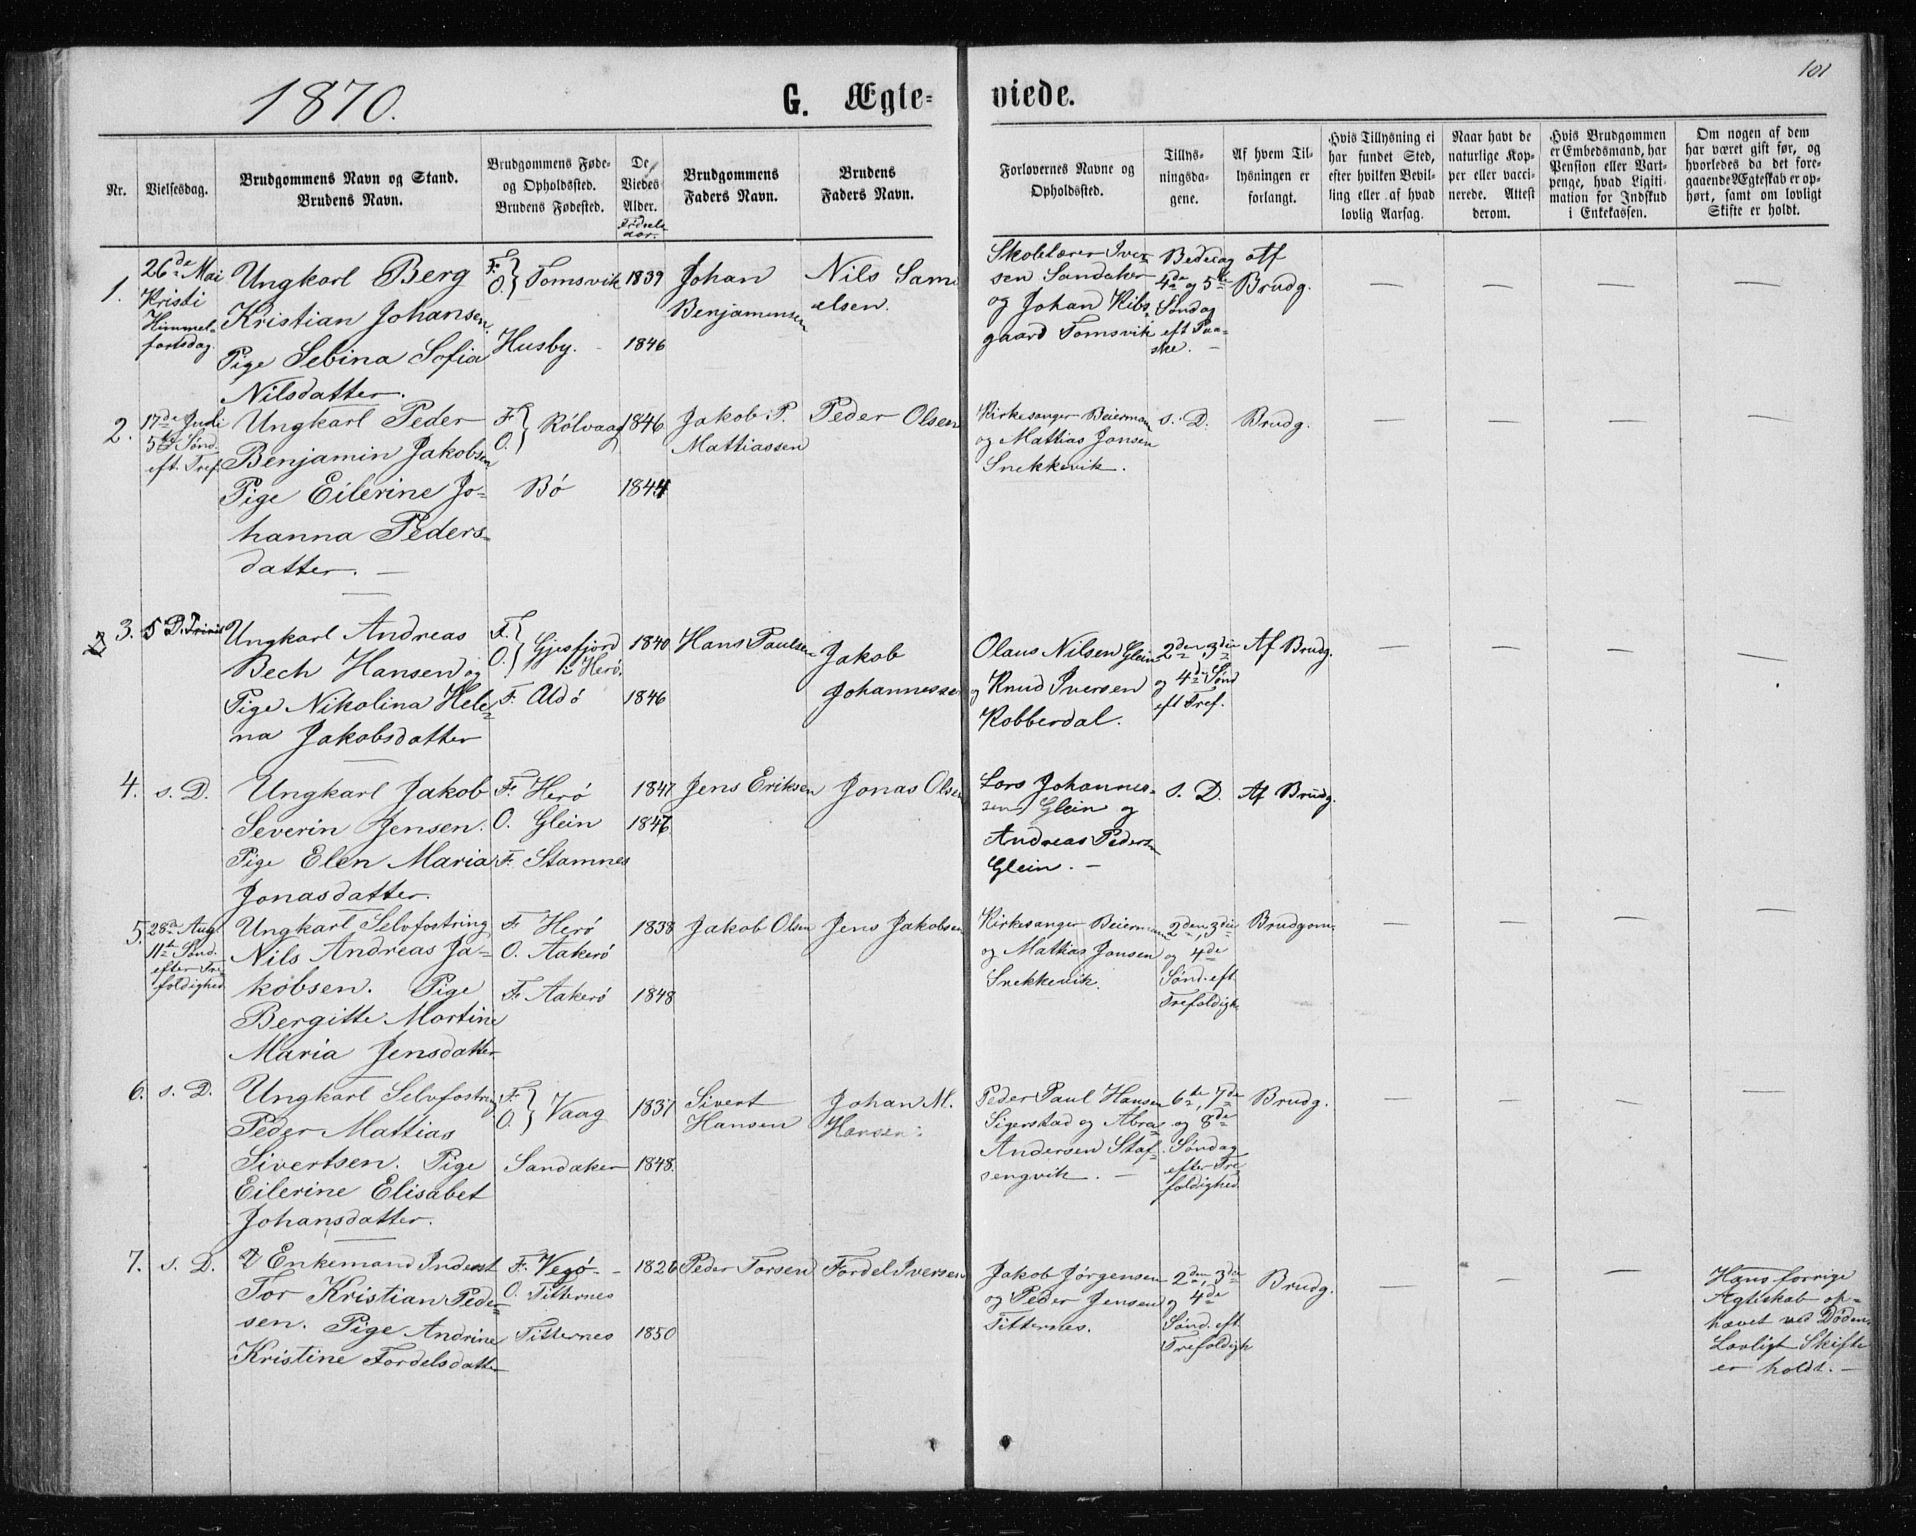 101
1870.
G. Ægte=
viede.
Nr.
Vielsesdag.
Brudgommens Navn og Stand.
Brudens Navn.
Brudgommens Føde-
og Opholdssted.
Brudens Fødested.
De
Viedes
Alder.
Fødsels
aar.
Brudgommens
Faders Navn.
Brudens
Faders Navn.
Forlovernes Navne og
Opholdssted.
Tillys-
ningsda-
gene.
Af hvem Til-
lysningen er
forlangt.
Hvis Tillysning ei
har fundet Sted,
efter hvilken Bevil-
ling eller af hvad
lovlig Aarsag.
Naar havt de
naturlige Kop-
per eller vacci-
nerede. Attest
derom.
Hvis Brudgommen
er Embedsmand, har
Pension eller Vart-
penge, hvad Ligiti-
mation for Indskud
i Enkekassen.
Om nogen af dem
har været gift før, og
hvorledes da det fore-
gaaende Ægteskab er op-
hørt, samt om lovligt
Skifte er holdt.
1.
26de Mai
Kristi
Himmel-
fartsdag.
Ungkarl Berg
Kristian Johansen.
Pige Sebina Sofia
Nilsdatter.
F.
O. } Tomsvik
Husby.
1839
1846
Johan
Benjaminsen
Nils Sam-
elsen.
Skolelærer Iver-
sen Sandaker
og Johan Kibs-
gaard Tomsvik
Bededag
4de og 5te
Søndag
eft Paa-
ske. —
Af
Brudg.
— — — —
2.
17de Juli
5te Sønd.
eft. Tref.
Ungkarl Peder
Benjamin Jakobsen
Pige Eilerine Jo-
hanna Peders-
datter. —
F.
O. } Rölvaag
Bö
1846
1844
Jakob P.
Mattiassen
Peder Olsen
Kirkesanger Beierman
og Mattias Jonsen
Snekkevik.
s. D.
Brudg.
— — — —
3.
5 D. Trinit
Ungkarl Andreas
Bech Hansen og
Pige Nikolina Hele-
na Jakobsdatter
F.
O. } Gjesfjord
i Herö.
F. Aldö
1840
1846
Hans Paulsen
Jakob
Johannessen
Olaus Nilsen Glein
og Knud Iversen
Kobberdal.
2den, 3die
og 4de Sønd
eft Tref.
Af Brudg.
— — — —
4.
s. D.
Ungkarl Jakob
Severin Jensen.
Pige Elen Maria
Jonasdatter.
F. Herö
O. Glein
F. Stamnes
1847
1847
Jens Eriksen
Jonas Olsen
Lars Johannes-
sen Glein og
Andreas Pedersen
Glein. —
s. D.
Af Brudg.
— — — —
5.
28de Aug.
11te Sønd.
efter Tre-
foldighed
Ungkarl Selvfostring
Nils Andreas Ja-
kobsen. Pige
Bergitte Martine
Maria Jensdatter
F. Herö
O. Aakerö
F. Aakerö
1838
1848
Jakob Olsen
Jens Jakobsen
Kirkesanger Beiermann
og Mattias Jonsen
Snekkevik.
2den, 3die
og 4de
Sønd. eft.
Trefoldigh
Brudgom.
— — — —
6.
s. D.
Ungkarl Selvfostring
Peder Mattias
Sivertsen. Pige
Eilerine Elisabet
Johansdatter.
F.
O. } Vaag
Sandaker
1837
1848.
Sivert
Hansen
Johan M.
Hansen.
Peder Paul Hansen
Sigerstad og Abra-
Andersen Staf-
sengvik. —
6te, 7de
og 8de
Søndag
efter Tre-
foldighed
Brudg.
— — — —
7.
s. D.
Enkemand Inderst
Tor Kristian Peder-
sen. Pige Andrine
Kristine Tordelsdatter
F. Vegö
O. Titternes
Titternes
1826
1850
Peder Torsen
Tordel Iversen
Jakob Jørgensen
og Peder Jensen
Titternes.
2den, 3die
og 4de
Sønd. eft
Trefoldigh
Brudg.
— — —
Hans forrige
Ægteskab op-
hævet ved Døden.
Lovligt Skifte
er holdt. —